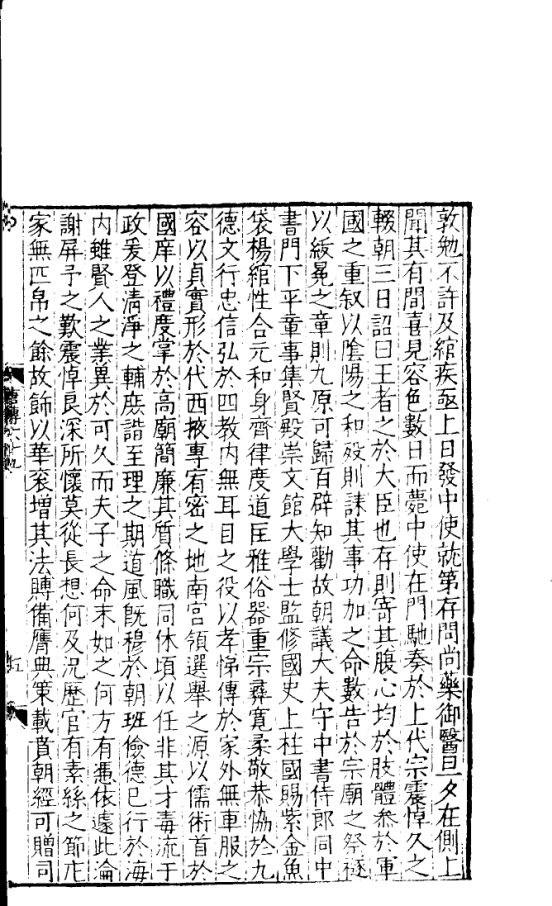 敦勉不許及綰疾亟上日發中使就第存問尚藥御醫旦夕在側上
聞其有間喜見容色數日而薨中使在門馳奏於上代宗震悼久之
輟朝三日詔曰王者之於大臣也存則寄其腹心均於肢體叅於軍
國之重叙以陰陽之和殁則誄其事功加之命數告於宗廟之祭襚
以紱冕之章則九原可歸百辟知勸故朝議大夫守中書侍郎同中
書門下平章事集賢殿崇文館大學士監修國史上柱國賜紫金魚
袋楊綰性合元和身齊律度道匡雅俗器重宗彞寛柔敬恭恊於九
德文行忠信弘於四教内無耳目之役以孝悌傳於家外無車服之
容以貞實形於代西掖專宥密之地南宫領選舉之源以儒術首於
國庠以禮度掌於高廟簡廉其質條職同休頃以任非其才毒流于
政爰登清淨之輔庶諧至理之期道風旣穆於朝班儉德已行於海
内雖賢人之業異於可久而夫子之命末如之何方有憑依遽此淪
謝屏予之歎震悼良深所懷莫從長想何及况歷官有素絲之節尤
家無匹帛之餘故飾以華衮增其法賻備膺典策載賁朝經可贈司